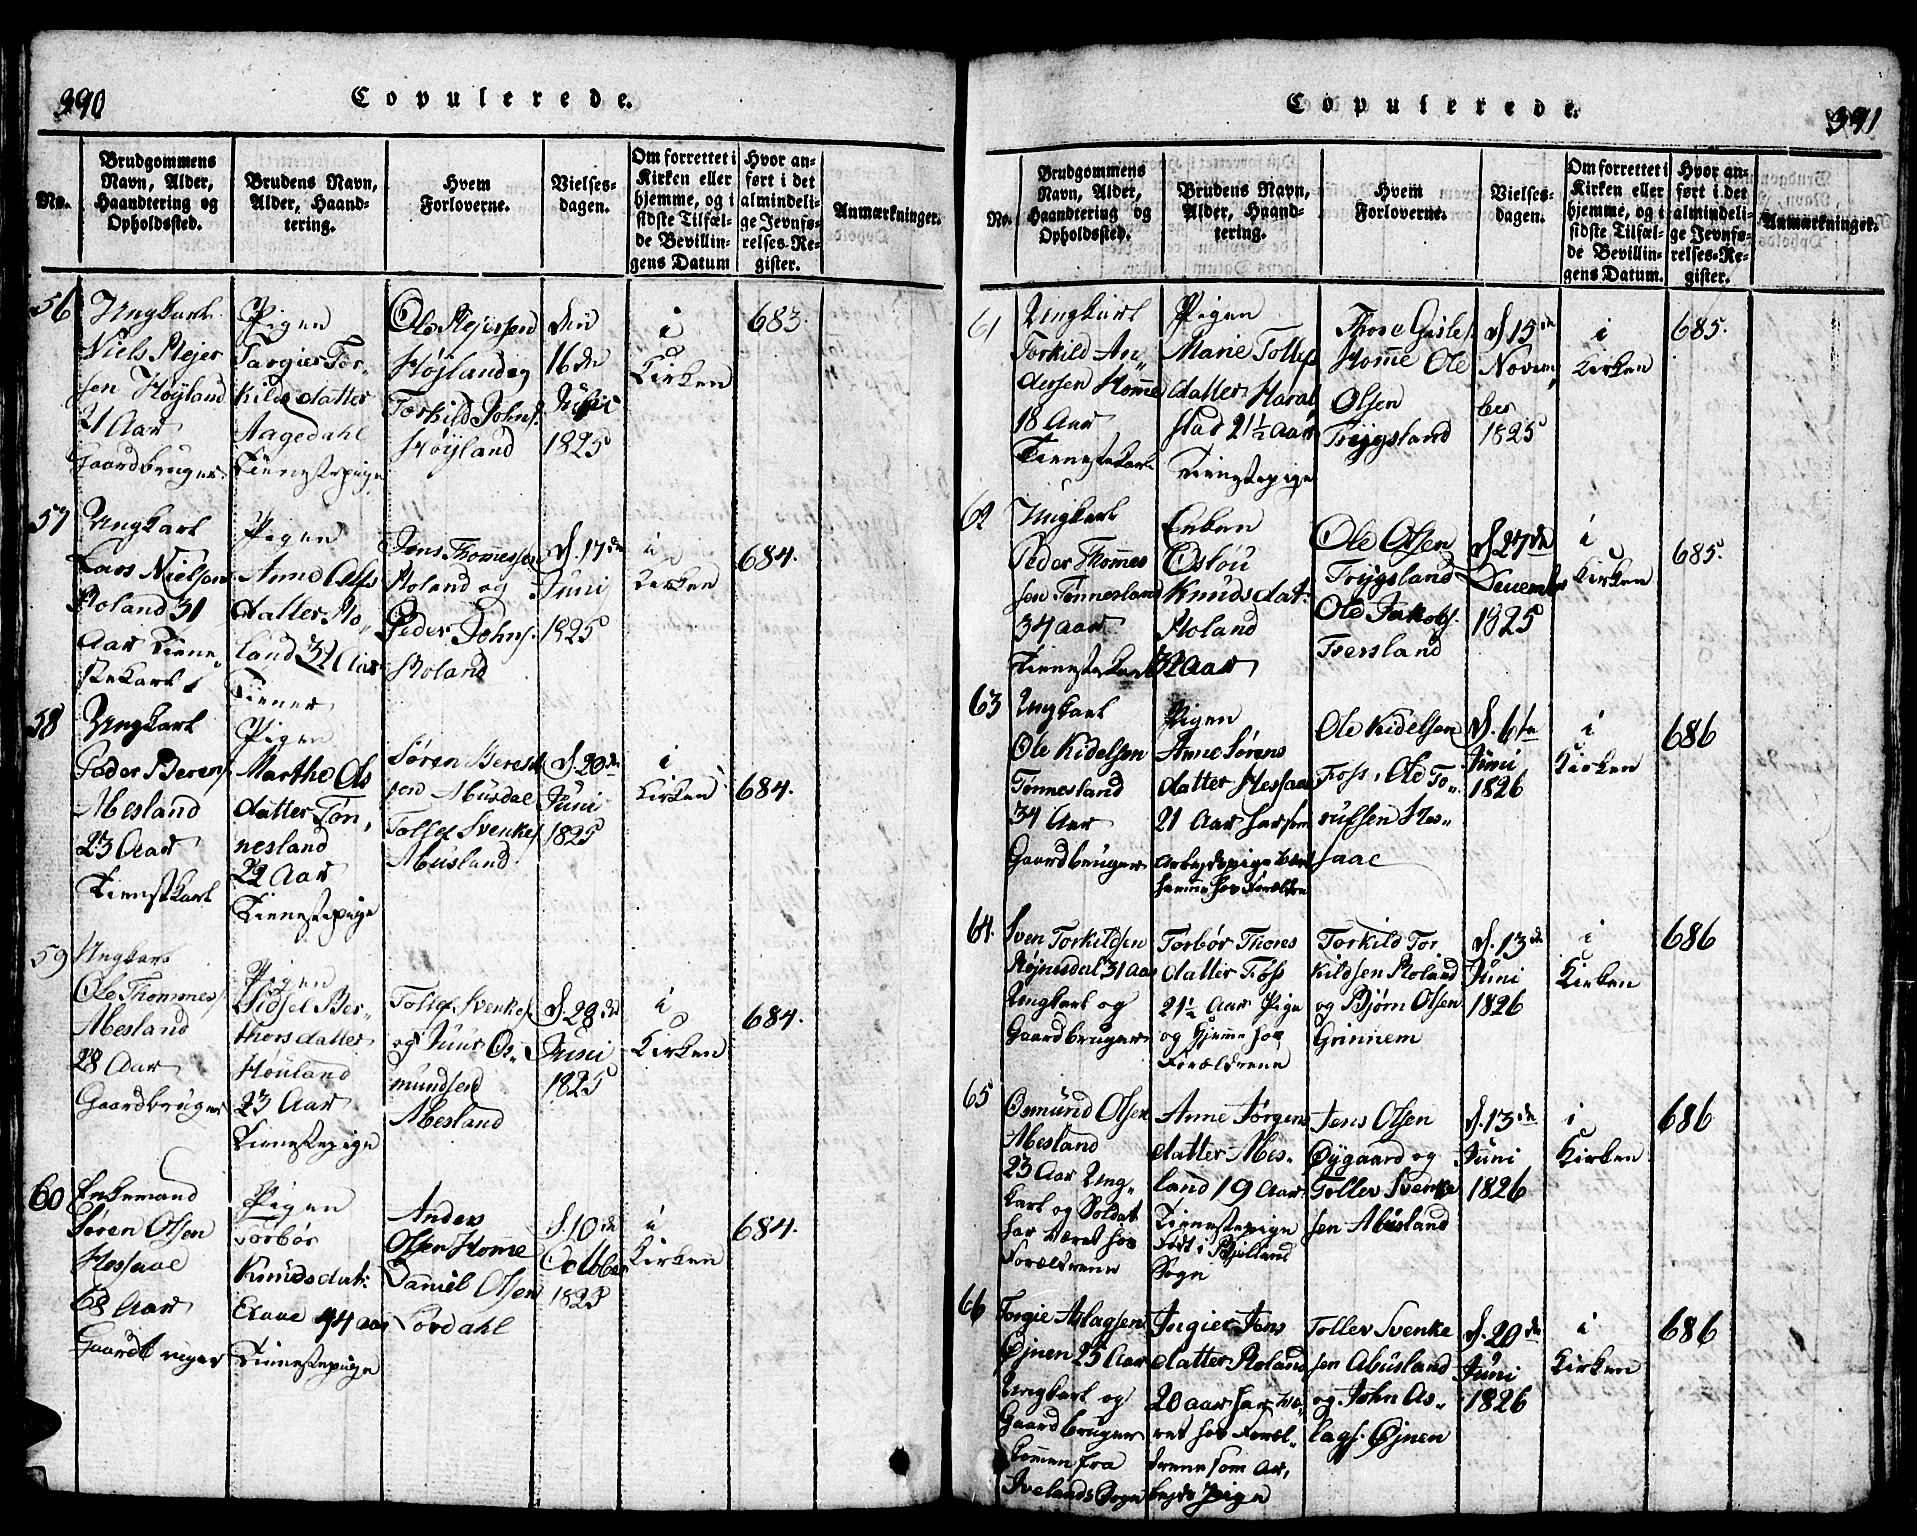 390
Copulerede.
No.
Brudgommens Navn, Alder, Haandtering og Opholdssted.
Brudens Navn, Alder, Haandtering.
Hvem Forloverne.
Vielsesdagen.
Om forrettet i Kirken eller hjemme, og i sidste Tilfælde Bevillingens Datum
Hvor anført i det almindelige Jevnførelses-Register.
Anmærkninger.
56
Ungkarl
Niels Rejer
sen Høyland
21 Aar
Gaardbruger
Pigen
Targier Tor-
kilds datter
Aagedahl
Tienestepige
Ole Rejersen
Højland og
Torkild Johns.
Høyland
Den
16de
1825
i
Kirken
683
57
Ungkarl
Lars Nielsen
Roland 31
Aar Tiene-
stekarl
Pigen
Anne Olss
datter Ro-
land 32 Aar
Tiener
Jens Thomessen
Roland og
Peder Johns.
Roland
d. 17de
Juni
1825
i
Kirken
684.
58
Ungkarl
Peder Berens
Abesland
23 Aar
Tienstkarl
Pigen
Marthe Ols
datter Tøn,
nesland
22 Aar
Tienestepige
Søren Berent
sen Abusdal
Tollef Svenkes
Abusland
d. 20de
Juni
1825
i
Kirken
684.
59
Ungkarl
Ole Thommes
Abesland
28 Aar
Gaardbruger
Pigen
Sidsel Ber-
thorsdatter
Houland
23 Aar
Tienestepige
Tollef Svenkes
og Juur Os-
mundsen
Abesland
d. 28de
Juni
1825
i
Kirken
684.
60
Enkemand
Søren Olsen
Hessaae
68 Aar
Gaardbruger
Pigen
Torbør
Knudsdat:
Eraae 44 aar
Tienestepige
Anders
Olsen Homme
Daniel Olsen
Lordahl
d. 10de
Octbber
1825
i
Kirken
684.
Copulerede.
391
No.
Brudgommens Navn, Alder, Haandtering og Opholdssted.
Brudens Navn, Alder, Haandtering.
Hvem Forloverne.
Vielsesdagen.
Om forrettet i Kirken eller hjemme, og i sidste Tilfælde Bevillingens Datum.
Hvor anført i det almindelige Jevnførelses-Register.
Anmærkninger.
61
Ungkarl
Torkild An-
dersen Homme
18 Aar
Tienestekarl
Pigen
Marie Tolless
datter Haral
stad 21½ Aar
Tienestepige
Thore Gisles
Homme Ole
Olsen
Trygsland
d. 15de
Novem,
ber
1825
i
Kirken
685.
62
Ungkarl
Peder Thommes
sen Tønnesland
34 aar
Tienestekarl
Enken
Oslou
Knudsdat:
Roland
32 Aar
Ole Olsen
Trygsland
Ole Jakobs.
Tversland
d. 27de
December
1825
i
Kirken
685.
63
Ungkarl
Ole Kidelsen
Tønnesland
34 Aar
Gaardbruger
Pigen
Anne Sørens
datter Hessaae
21 Aar har som
arbejdspige vært
hjemme hos Foreldrene
Ole Kidelsen
Foss, Ole To-
rufsen Hes-
saae
d. 6te
Juni
1826
i
Kirken
686
64.
Sven Torkildsen
Røjnesdal 31 Aar
Ungkarl og
Gaardbruger
Torbør Thores
datter Foss
21½ Aar Pige
og hjemme hos
Forældrene
Torkild Tor
kildsen Roland
og Bjørn Olsen
Grinnem
d. 13de
Juni
1826
i
Kirken
686
65
Osmund Olsen
Abesland
23 Aar Ung-
karl og Soldat
har været hos
Forældrene
Anne Jørgens
datter Abes-
land 19 Aar
Tienestepige
Født i Bjelland
Sogn
Jens Olsen
Øygaard og
Tollev Svenke
sen Abusland
d. 13de
Juni
1826
i
Kirken
686
66
Torgie Aslagsen
Øjnen 25 Aar
Ungkarl og
Gaardbruger
kommen fra
Ivelands Sogn
Ingier Jens
datter Roland
20 aar har væ-
ret hos Foræl-
drene som Ar,
bejds Pige
Tollev Svenke
sen Abusland
og John As-
lags. Øjnen
d. 20de
Juni
1826
i
Kirken
686